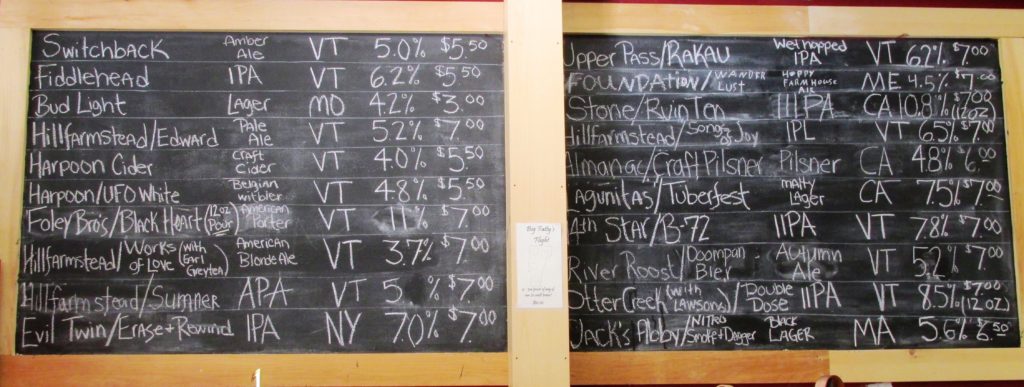 Switchback Amber Ale VT 5.0% $5.50
Fiddlehead IPA VT 6.2% $5.50
Bud Light Lager MO 4.2% $3.00
Hillfarmstead/Edward Pale Ale VT 5.2% $7.00
Harpoon Cider Craft Cider VT 4.0% $5.50
Harpoon/UFO White Belgian witbier VT 4.8% $5.50
Foley Bros/Black Heart (12oz Pour) American Porter VT 11% $7.00
Hillfarmstead/Works of Love (with Earl Grey tea) American Blonde Ale VT 3.7% $7.00
Hillfarmstead/Sumner APA VT 5 % $7.00
Evil Twin/Erase + Rewind IPA NY 7.0% $7.00
Big Fatty's Flight
Upper Pass/Rakau Wet hopped IPA VT 6.2% $7.00
Foundation/Wander Lust Hoppy Farmhouse Ale ME 4.5% $7.00
Stone/RuinTen IIIPA CA 10.8% $7.00 (12oz)
Hillfarmstead/Song of Joy IPL VT 6.5% $7.00
Almanac/Craft Pilsner Pilsner CA 4.8% $6.00
Lagunitas/Tuberfest malty Lager CA 7.5% $7.00
4th Star/B-72 IIPA VT 7.8% $7.00
River Roost/Doompan Bier Autumn Ale VT 5.2% $7.00
Otter Creek (with Lawsons)/Double Dose IIPA VT 8.5% $7.00 (12oz)
Jack's Abby/Nitro Smoke + Dagger Black Lager MA 5.6% $6.50